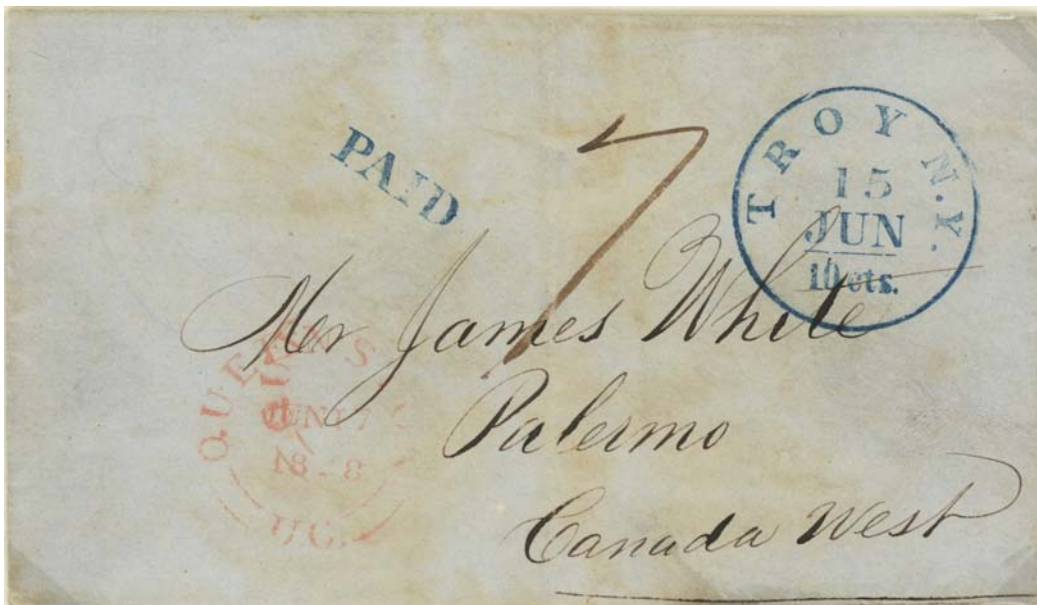 PAID
7
TROY N.Y.
15
JUN
10 cts.
Mr James White
Palermo
Canada West
QUEENSTON
JUN 17
U.C.